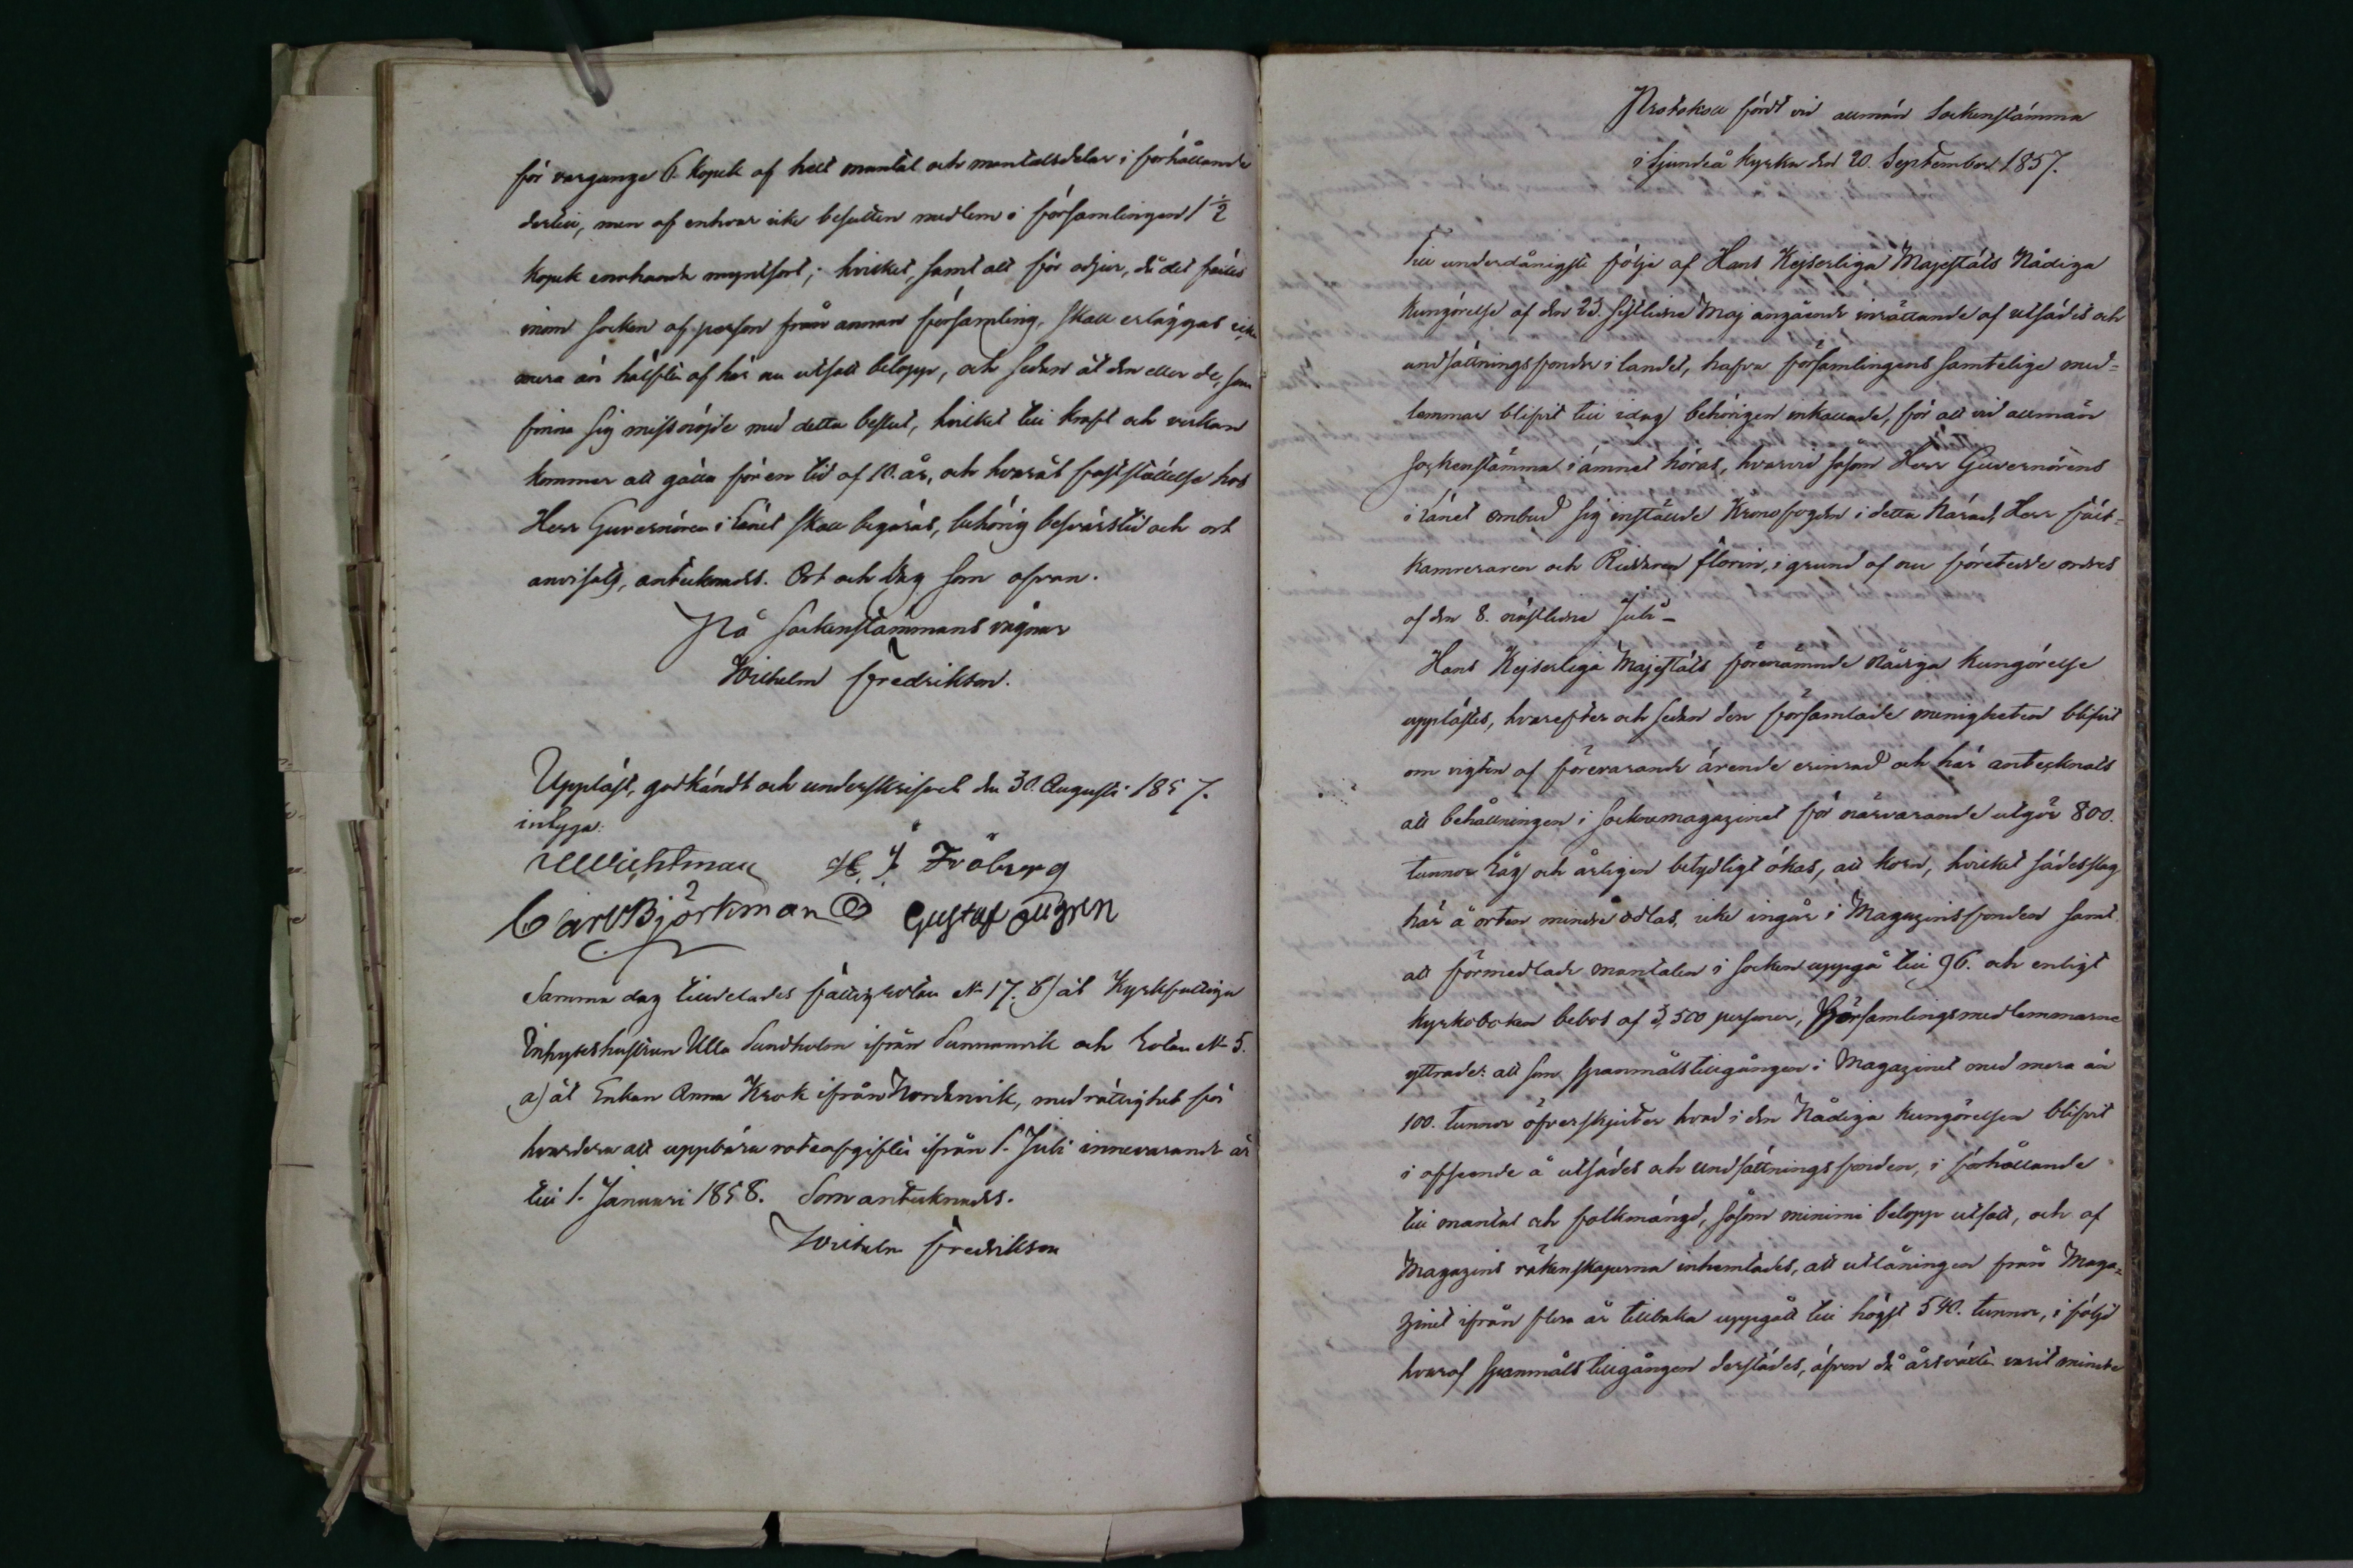 för vargunge 6. kopek af helt mantal och mantalsdelar i förhållande
dertill, men af enhvar icke besutten medlem i församlingen 1 1/2
kopek enahanda myntsort; hvilket, samt att för odjur, då det fälles
inom socken af person från annan församling, skall erläggas icke
mera än hälften af här nu utsatt belopp, och sedan åt den eller de, som
finna sig missnöjde med detta beslut, hvilket till kraft och verkan
kommer att gälla för en tid af 10. år, och hvarå fastställelse hos
Herr Guvernören i Länet skall begäras, behörig besvärstid och ort
anvisats, antecknades. Ort och dag som ofvan.
På Sockenstämmans vägnar
Wilhelm Fredrikson.
Uppläst, godkändt och underskrifvet den 30. Augusti 1857.
intyga:
Wichtman H. J. Fröberg
Carl Björkman Gustaf
Samma dag tilldelades fattigrotan N 17. b) åt Kyrkfattiga
Inhyseshustrun Ulla Sundholm ifrån Sunnanvik och rotan N 5.
a) åt Enkan Anna Krok ifrån Nordanvik, med rättighet för
hvardera att uppbära roteafgiften ifrån 1. Juli innevarande år
till 1. Januari 1858. Som antecknades.
Wilhelm Fredrikson
Protokoll fördt vid allmän Sockenstämma
i Sjundeå kyrka den 20. September 1857.
Till underdånigste följe af Hans Kejserliga Majestäts Nådiga
Kungörelse af den 23. sistledne Maj angående inrättande af utsädes och
undsättningsfonder i landet, hafva församlingens samtelige med-
lemmar blifvit till idag behörigen inkallade, för att vid allmän
sockenstämma i ämnet höras, hvarvid såsom Herr Guvernörens
i länet ombud sig inställde Kronofogden i detta härad, Herr Fält-
kamreraren och Riddaren Florin, i grund af nu företedde ordres
af den 8. nästledne Juli –
Hans Kejserliga Majestäts förenämnde nådiga Kungörelse
upplästes, hvarefter och sedan den församlade menigheten blifvit
om vigten af förevarande ärende erinrad och här antecknats
att behållningen i socknemagazinet för närvarande utgör 800.
tunnor råg och årligen betydligt ökas, att korn, hvilket sädesslag
här å orten mindre odlas, icke ingår i Magazinsfonden samt
att förmedlade mantalen i socken uppgå till 96. och enligt
kyrkoboken bebos af 3,500 personer, Församlingsmedlemmarne
yttrade: att som spanmålstillgången i Magazinet med mera än
100. tunnor öfverskjuter hvad i den Nådiga kungörelsen blifvit
i afseende å utsädes och undsättningsfonden, i förhållande
till mantal och folkmängd, såsom minimi belopp utsatt, och af
Magazins räkenskaperna inhemtades, att utlåningen från Maga-
zinet ifrån flera år tillbaka uppgått till högst 540. tunnor, i följd
hvaraf spanmåls tillgången derstädes, äfven då årsväxten varit mindre